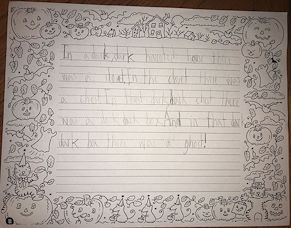 In a dark, dark haunted house there
was a closet. In the closet there was
a chest. In that dark, dark chest there
was a dark dark box. And in that dark
dark box there was a ghost!